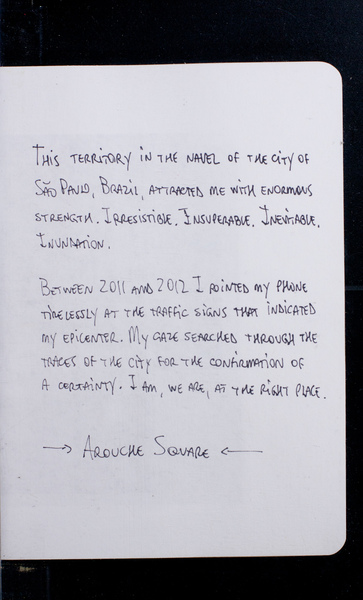 This territory in the navel of the city of
São Paulo, Brazil, attracted me with enormous
strength. Irresistible. Insuperable. Inevitable.
Inundation.
Between 2011 and 2012 I pointed my phone
tirelessly at the traffic signs that indicated
my epicenter. My gaze searched through the
traces of the city for the confirmation of
a certainty. I am, we are, at the right place.
→ Arouche Square ←